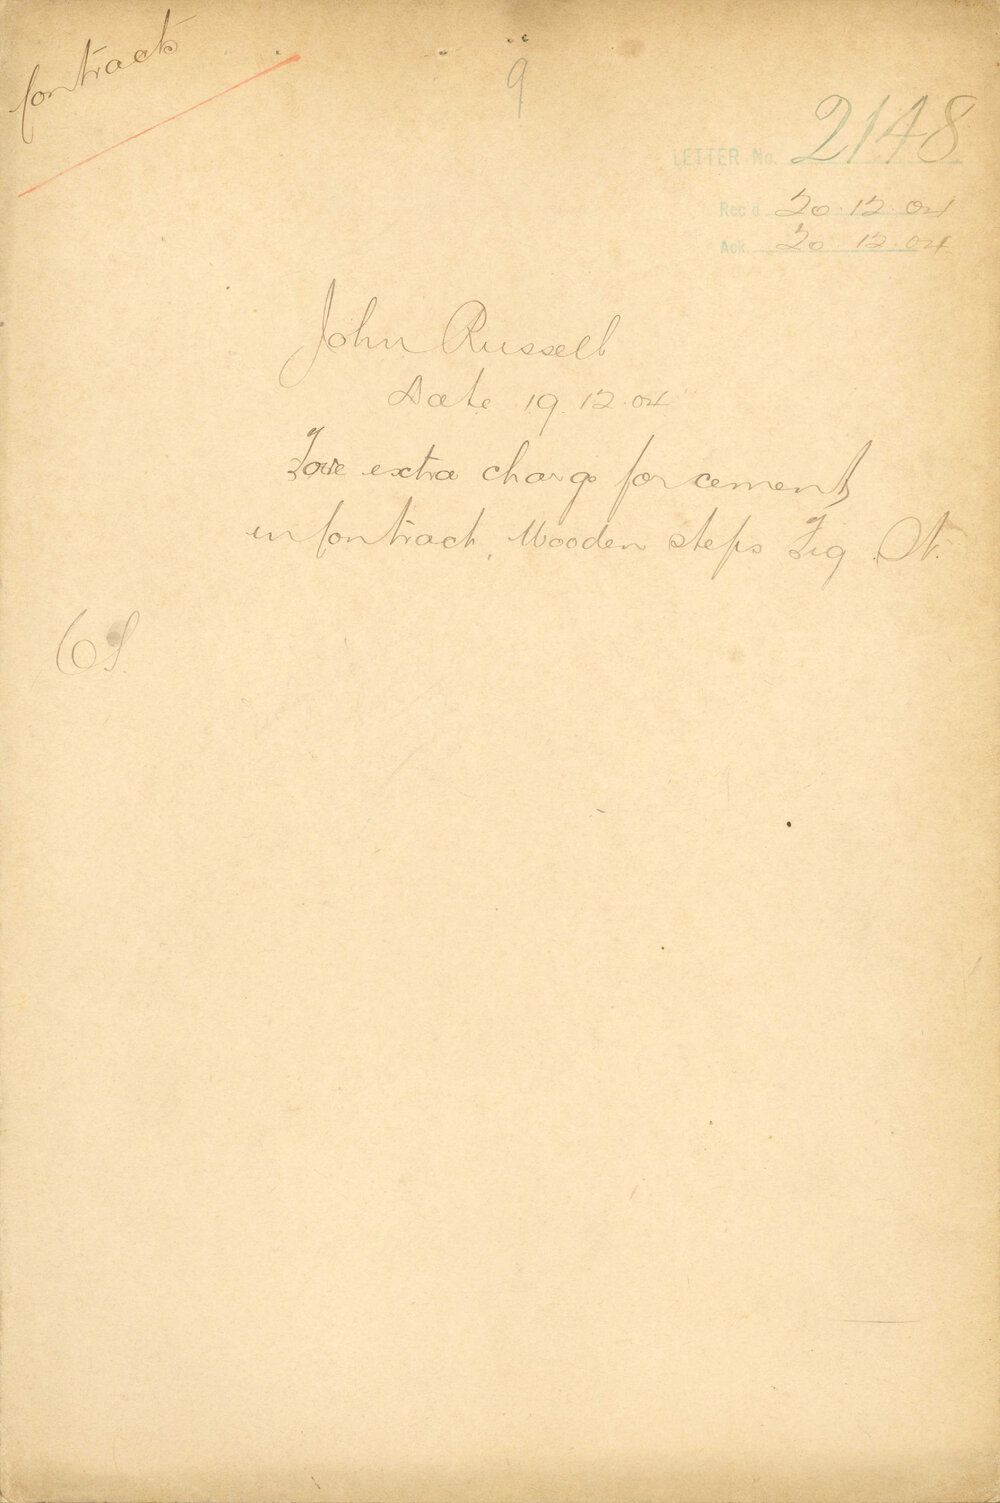 Contracts
9
LETTER No. 2148
Rec'd 20.12.04
Ack. 20.12.04
John Russell
Date 19.12.04
extra charge for cement
in Contract, Wooden steps Fig St.